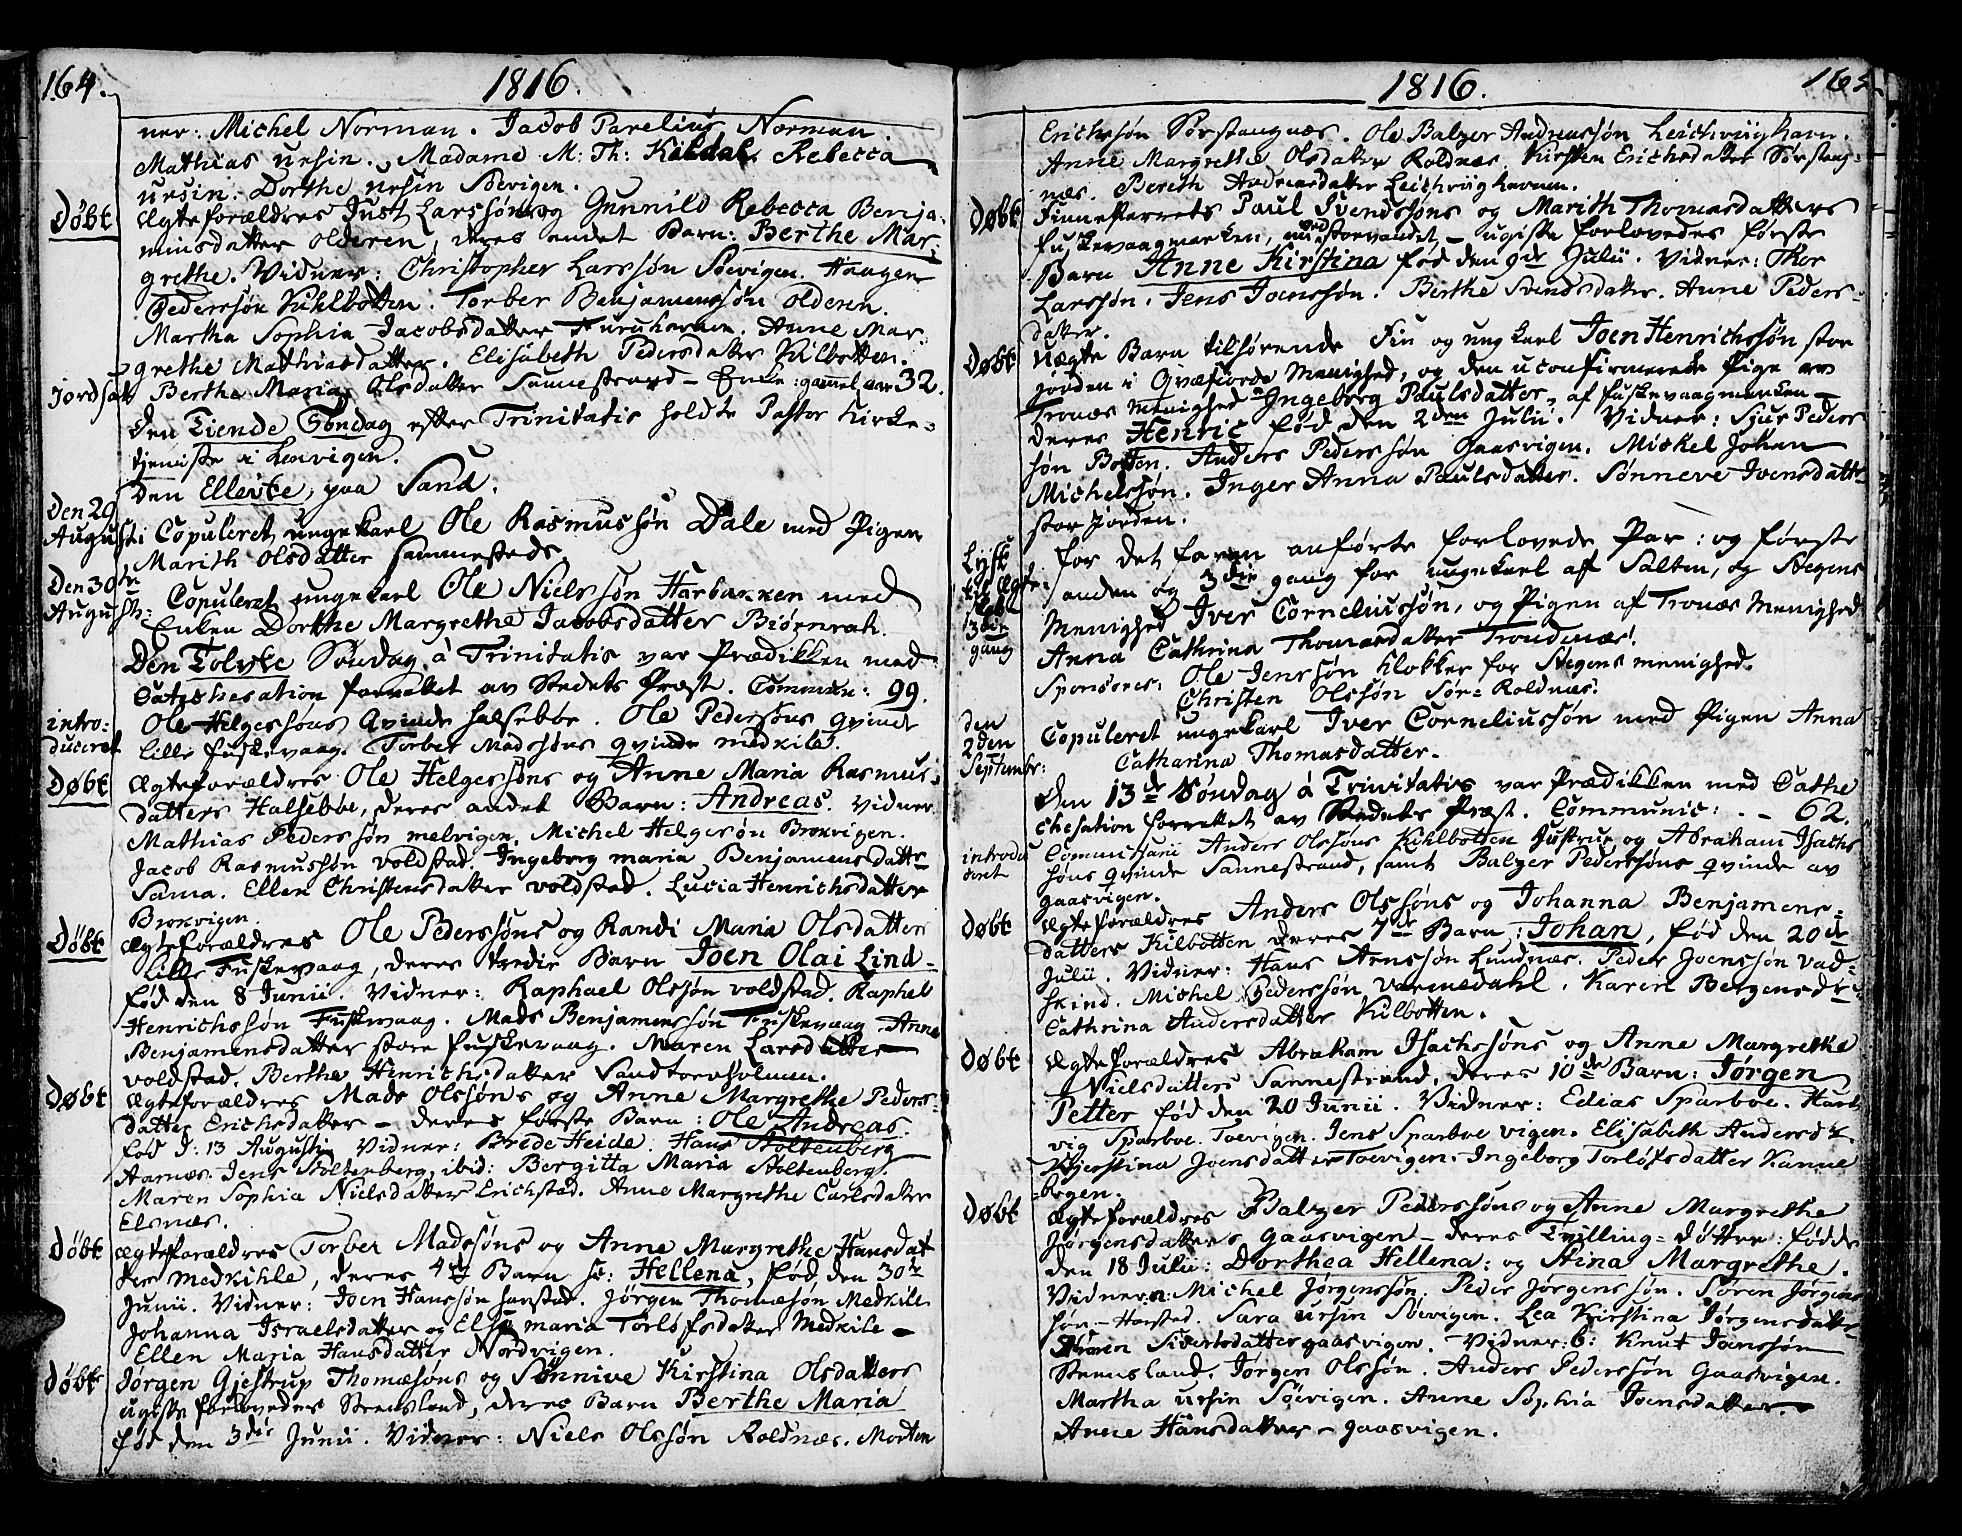 164.
1816.
ner: Michel Norman. Jacob Parelius Norman.
Mathias Ursin. Madame M: Th: Kildal. Rebecca
Ursin. Dorthe Ursin Søevigen.
Døbt Ægteforældres Just Larssøns og Gunnild Rebecca Benja-
minsdatter Olderen, deres andet Barn: Berthe Mar-
grethe. Vidner: Christopher Larssøn Søevigen. Haagen
Pederssøn Kihlbotten. Torber Benjamenssøn Olderen.
Martha Sophia Jacobsdatter. Anne Mar-
grethe Mathiasdatter. Elisabeth Pedersdatter Kilbotten.
Jordsat Berthe Maria Olsdatter Sannestrand - Enke: gammel aar 32.
Den Tiende Søndag efter Trinitatis holdte Pastor Kirke-
tjeniste i Leuvigen.
Den Ellevte, paa Sand.
Den 29
Augusti Copuleret ungekarl Ole Rasmussøn Dale med Pigen
Marith Olsdatter sammesteds
Den 30te
Augusti: Copuleret ungekarl Ole Nielssøn Harbakken med
Enken Dorthe Margrethe Jacobsdatter Biørnrah.
Den Tolvte Søndag à Trinitatis var Prædikken med
Catechesation forrettet av Stedets Præst. Communic: 99.
intro-
duceret Ole Helgessøns Qvinde Halseboe. Ole Pederssøns qvinde
Lille Fuskevaag. Torber Madssøns qvinde Medkile.
Døbt Ægteforældres Ole Helgessøns og Anne Maria Rasmus-
datters Halseboe, deres andet Barn: Andreas. Vidner
Mathias Pederssøn Melvigen, Michel Helgesøn Brokvigen.
Jacob Rasmussøn Voldstad. Ingeborg Maria Benjamensdatter
Sama. Ellen Christensdatter Voldstad. Lucia Henrichsdatter
Brokvigen.
Døbt Ægteforældres Ole Pederssøns og Randi Maria Olsdatter
Lille Fuskevaag, deres tredie Barn Joen Olai Lind-
fød den 8 Junii. Vidner: Raphael Olssøn Voldstad. Raphel
Henrichssøn Fuskevaag. Mads Benjamenssøn Fuskevaag. Anne
Benjamensdatter store Fuskevaag. Maren Larsdatter
Voldstad. Berthe Henrichsdatter Sandtorvholmen.
Døbt Ægteforældres Mads Olssøns og Anne Margrethe Peders-
datter Erichsdatter - deres første Barn: Ole Andreas.
fød d: 13 Augusti. Vidner: Brede Heide. Hans Stoltenberg
Aarnæs. Jens Stoltenberg, ibid: Bergitta Maria Stoltenberg.
Maren Sophia Nielsdatter Erichstad. Anne Margrethe Carlsdatter
Elsnæs.
Døbt Ægteforældres Torber Madssøns og Anne Margrethe Hansdat
ter Medkihle, deres 4de Barn : Hellena, fød den 30te
Junii. Vidner: Joen Hanssøn Harstad. Jørgen Thomæsøn Medkile
Johanna Israelsdatter og Else Maria Torlefsdatter Medkile -
Ellen Maria Hansdatter Nordvigen.
Døbt Jørgen Giestrup Thomæsøns og Sønnive Kirstina Olsdatters
ugifte forlovedes Stensland, deres Barn Berthe Maria
fød den 3die Junii. Vidner: Niels Olssøn Roldnæs. Morten
1816.
165.
Erichssøn Sørstangnæs. Ole Balzer Andreassøn Leichvighavn.
Anne Margrethe Olsdatter Roldnæs. Kirsten Erichsdatter Sørstang-
næs. Bereth Andreasdatter Leichviighavnen.
Døbt Finneparrets Paul Svendssøns og Marith Thomasdatters
Fuskevaagmarken, ved Storvandet - ugifte forlovedes første
Barn Anne Kirstina fød den 9de Julii. Vidner: Thor
Larssøn. Jens Joenssøn. Berthe Svendsdatter. Anne Peders-
datter.
Døbt Uægte Barn tilhørende Fin og ungkarl Joen Henrichssøn stor
jorden i Qvæfiords Menighed, og den uconfirmerede Pige av
Tronæs Menighed Ingeborg Paulsdatter, af Fuskevaagmarken -
deres Henric fød den 2den Julii. Vidner: Sjur Peders
søn Botten. Anders Pederssøn Gaasvigen. Mickel Johan
Michelssøn. Inger Anna Paulsdatter. Sønneve Joensdatter
storjorden.
Lyst
til Ægte-
skab
3die
gang for det foran anførte forlovede Par: og første
anden og 3die gang for ungekarl af Salten, og Stegens
Menighed Iver Corneliussøn, og Pigen af Tronæs Menighed
Anna Cathrina Thomasdatter Trondenæs!
Sponsores: Ole Jenssøn Klokker for Stegens menighed.
Christen Olssøn Sør-Roldnæs.
den
2den
Septembr: Copuleret ungekarl Iver Corneliussøn med Pigen Anna
Catharina Thomasdatter.
Den 13de Søndag à Trinitatis var Prædikken med Cathe
chesation forrettet av Stedets Præst. Communic: - 62.
introdu
ceret Commissarii Anders Olssøns Kihlbotten Hustrue og Abraham Isachs
søns qvinde Sannestrand, samt Balzer Pederssøns qvinde av
Gaasvigen.
Døbt Ægteforældres Anders Olssøns og Johanna Benjamens-
datters Kilbotten deres 7de Barn: Johan, fød den 20de
Julii. Vidner: Hans Arnssøn Lundnæs. Peder Joenssøn Vad-
skind. Michel Pederssøn Varmedahl. Karen Bergensdr
Cathrina Andersdatter Kilbotten.
Døbt Ægteforældres Abraham Isachssøns og Anne Margrethe
Nielsdatters Sannestrand, deres 10de Barn: Jørgen
Petter fød den 20 Junii. Vidner: Edias Sparboe. Hart
vig Sparboe Toevigen. Jens Sparboe vigen. Elisabeth Andersdr.
Kjerstina Joensdatter Toevigen. Ingeborg Torløfsdatter Kanne
bogen.
Døbt Ægteforældres Balzer Pederssøns og Anne Margrethe
Jørgensdatters Gaasvigen - deres Tvilling-døttre: fødde
den 18 Julii: Dorthea Hellena: og Stina Margrethe.
Vidner: Michel Jørgenssøn. Peder Jørgenssøn. Søren Jørgens
søn - Harstad. Sara Ursin Søevigen. Lea Kirstina Jørgensdatter
Maren Sivertsdatter Gaasvigen. Vidner: b: Knut Joenssøn
Stensland. Jørgen Olssøn. Anders Pederssøn Gaasvigen.
Martha Ursin Søevigen. Anne Sophia Joensdatter.
Anne Hansdatter - Gaasvigen.